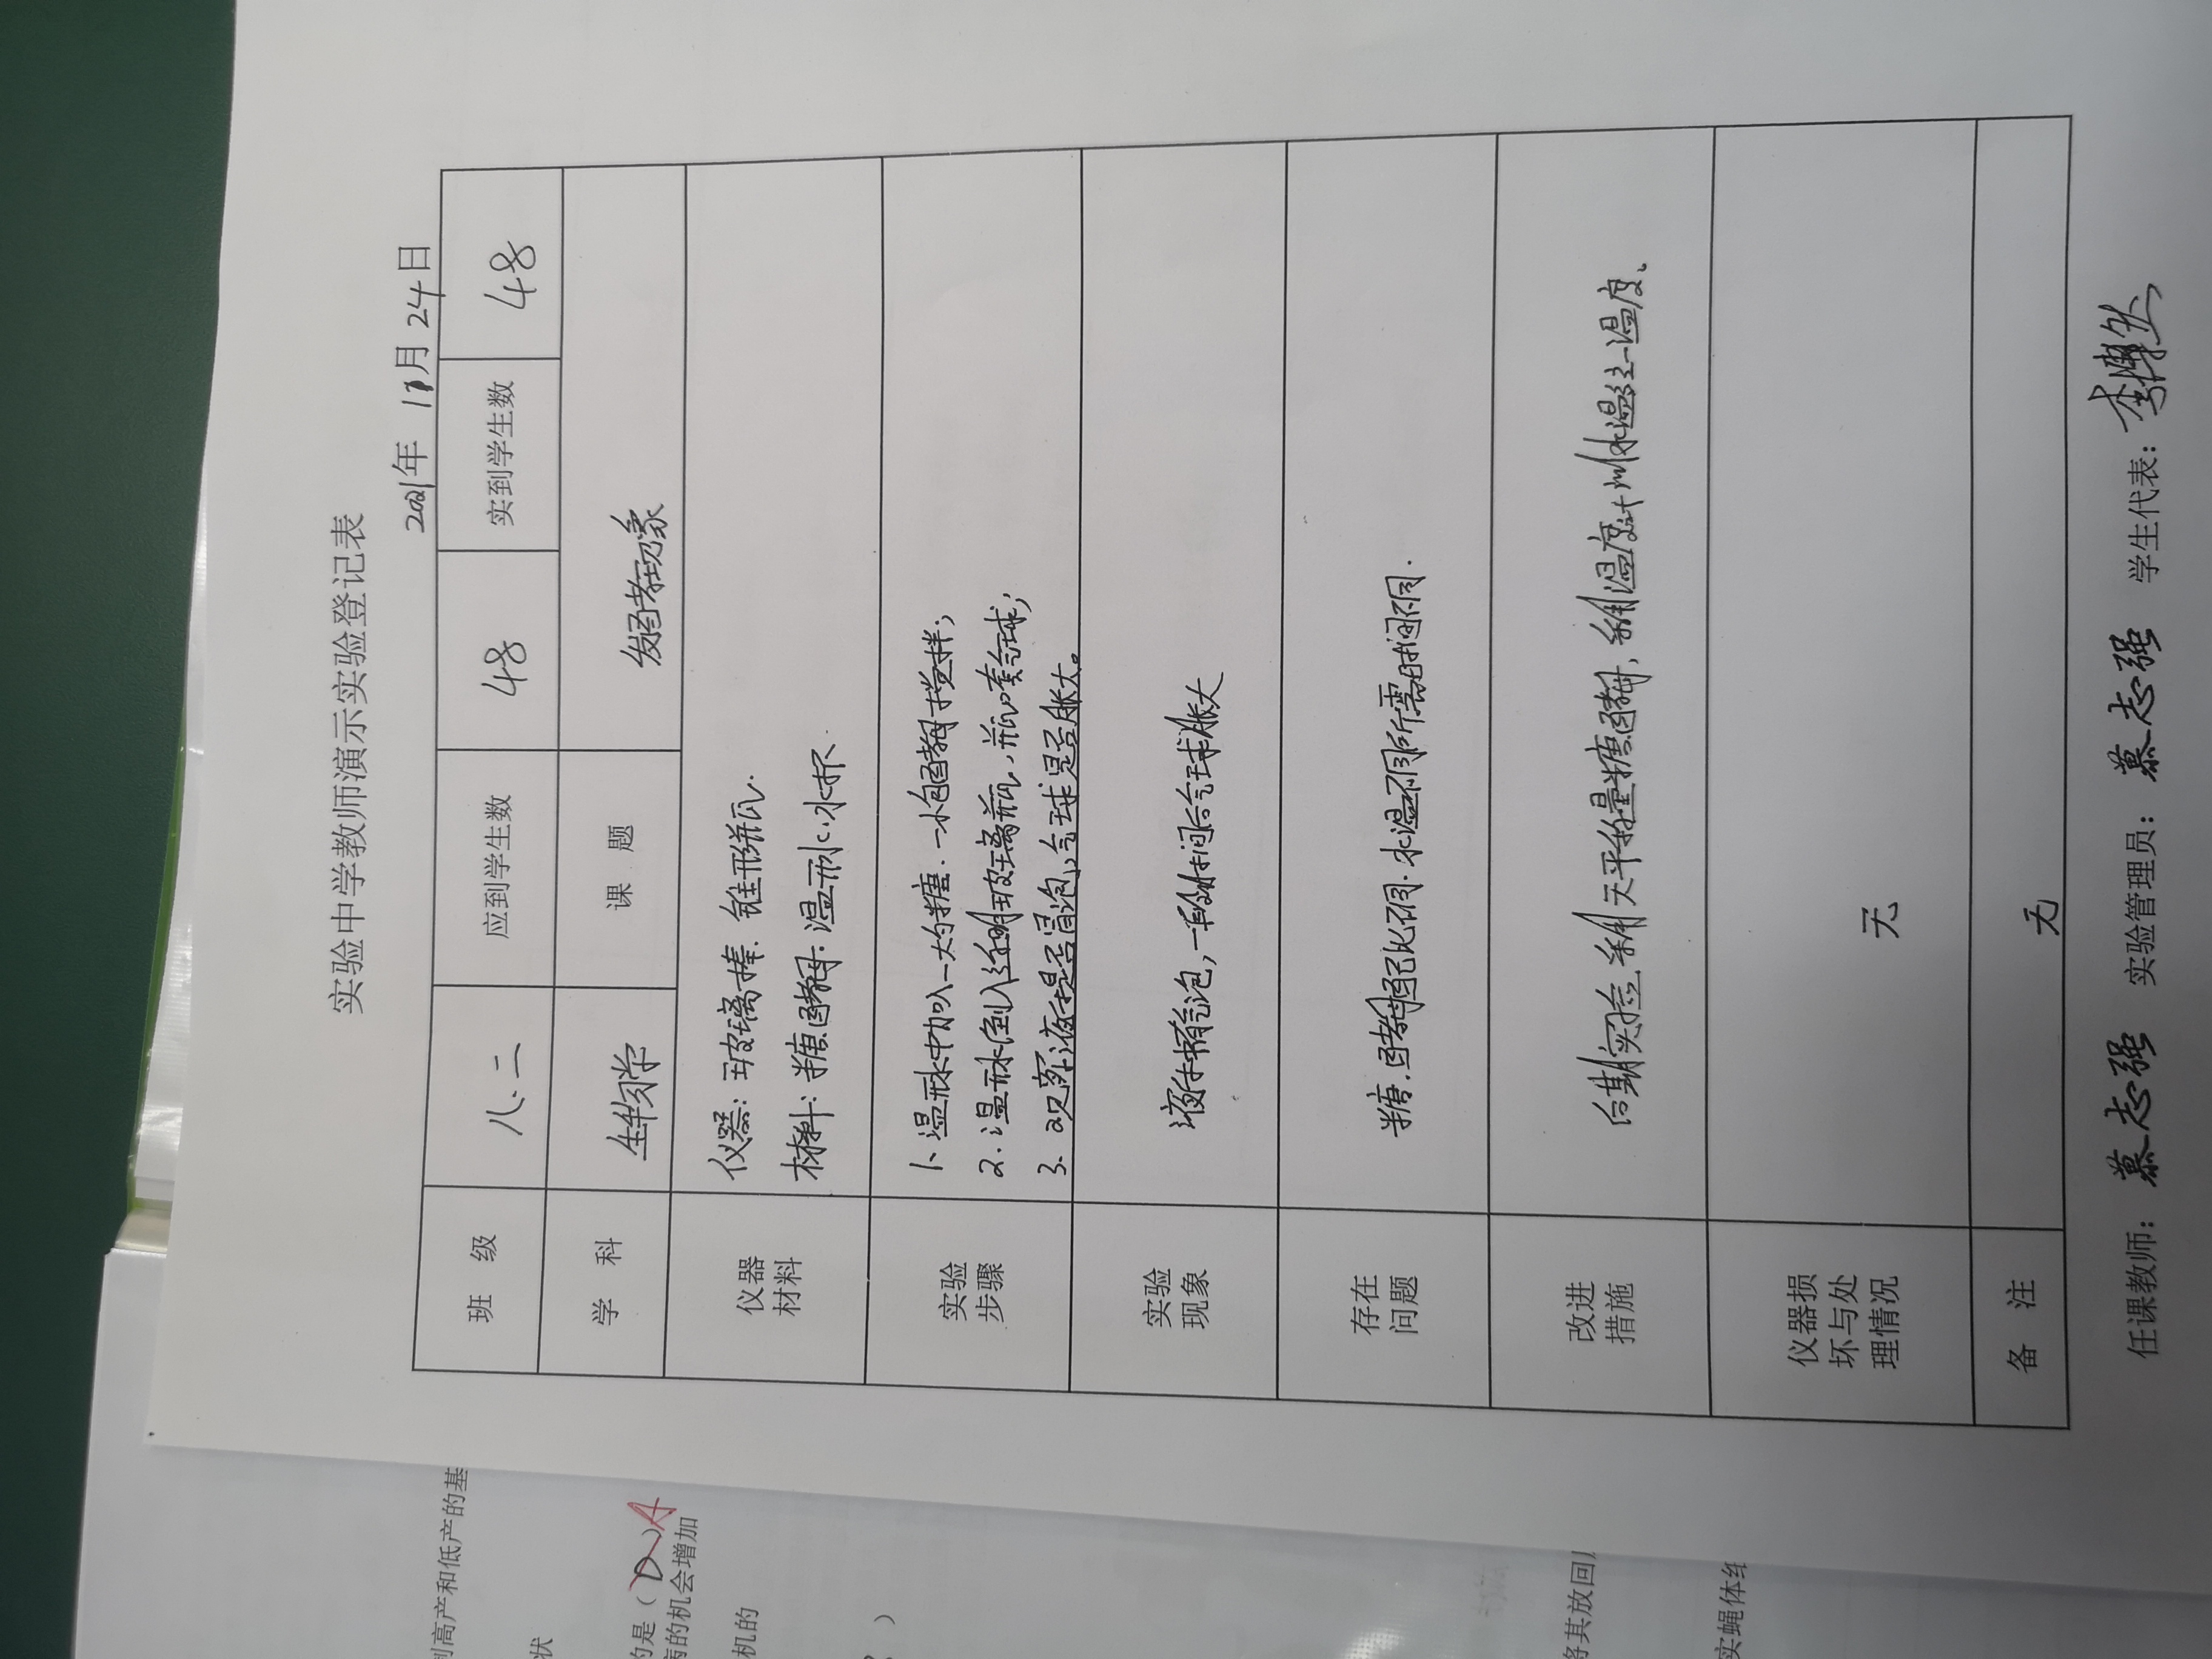 实验中学教师演示实验登记表
2021年 11月 24日
班 级 八.二 应到学生数 48 实到学生数 48
学 科 生物学 课 题 发酵现象
仪器材料
仪器：玻璃棒、锥形瓶.
材料：糖、酵母、温开水、水杯.
实验步骤
1、温开水中加入一大勺糖、一小包酵母搅拌；
2、温开水倒入透明玻璃瓶，瓶口套气球；
3、观察液体是否冒泡，气球是否胀大。
实验现象
液体有气泡，一段时间后气球胀大
存在问题
糖、酵母配比不同、水温不同所需时间不同.
改进措施
后期实验利用天平称量糖酵母，利用温度计测水温统一温度、
仪器损坏与处理情况
无
备 注
无
任课教师：慕志强 实验管理员：慕志强 学生代表：李
到高产和低产的基
状
的是（D）A
病的机会增加
机的
）
将其放回
实蝇体